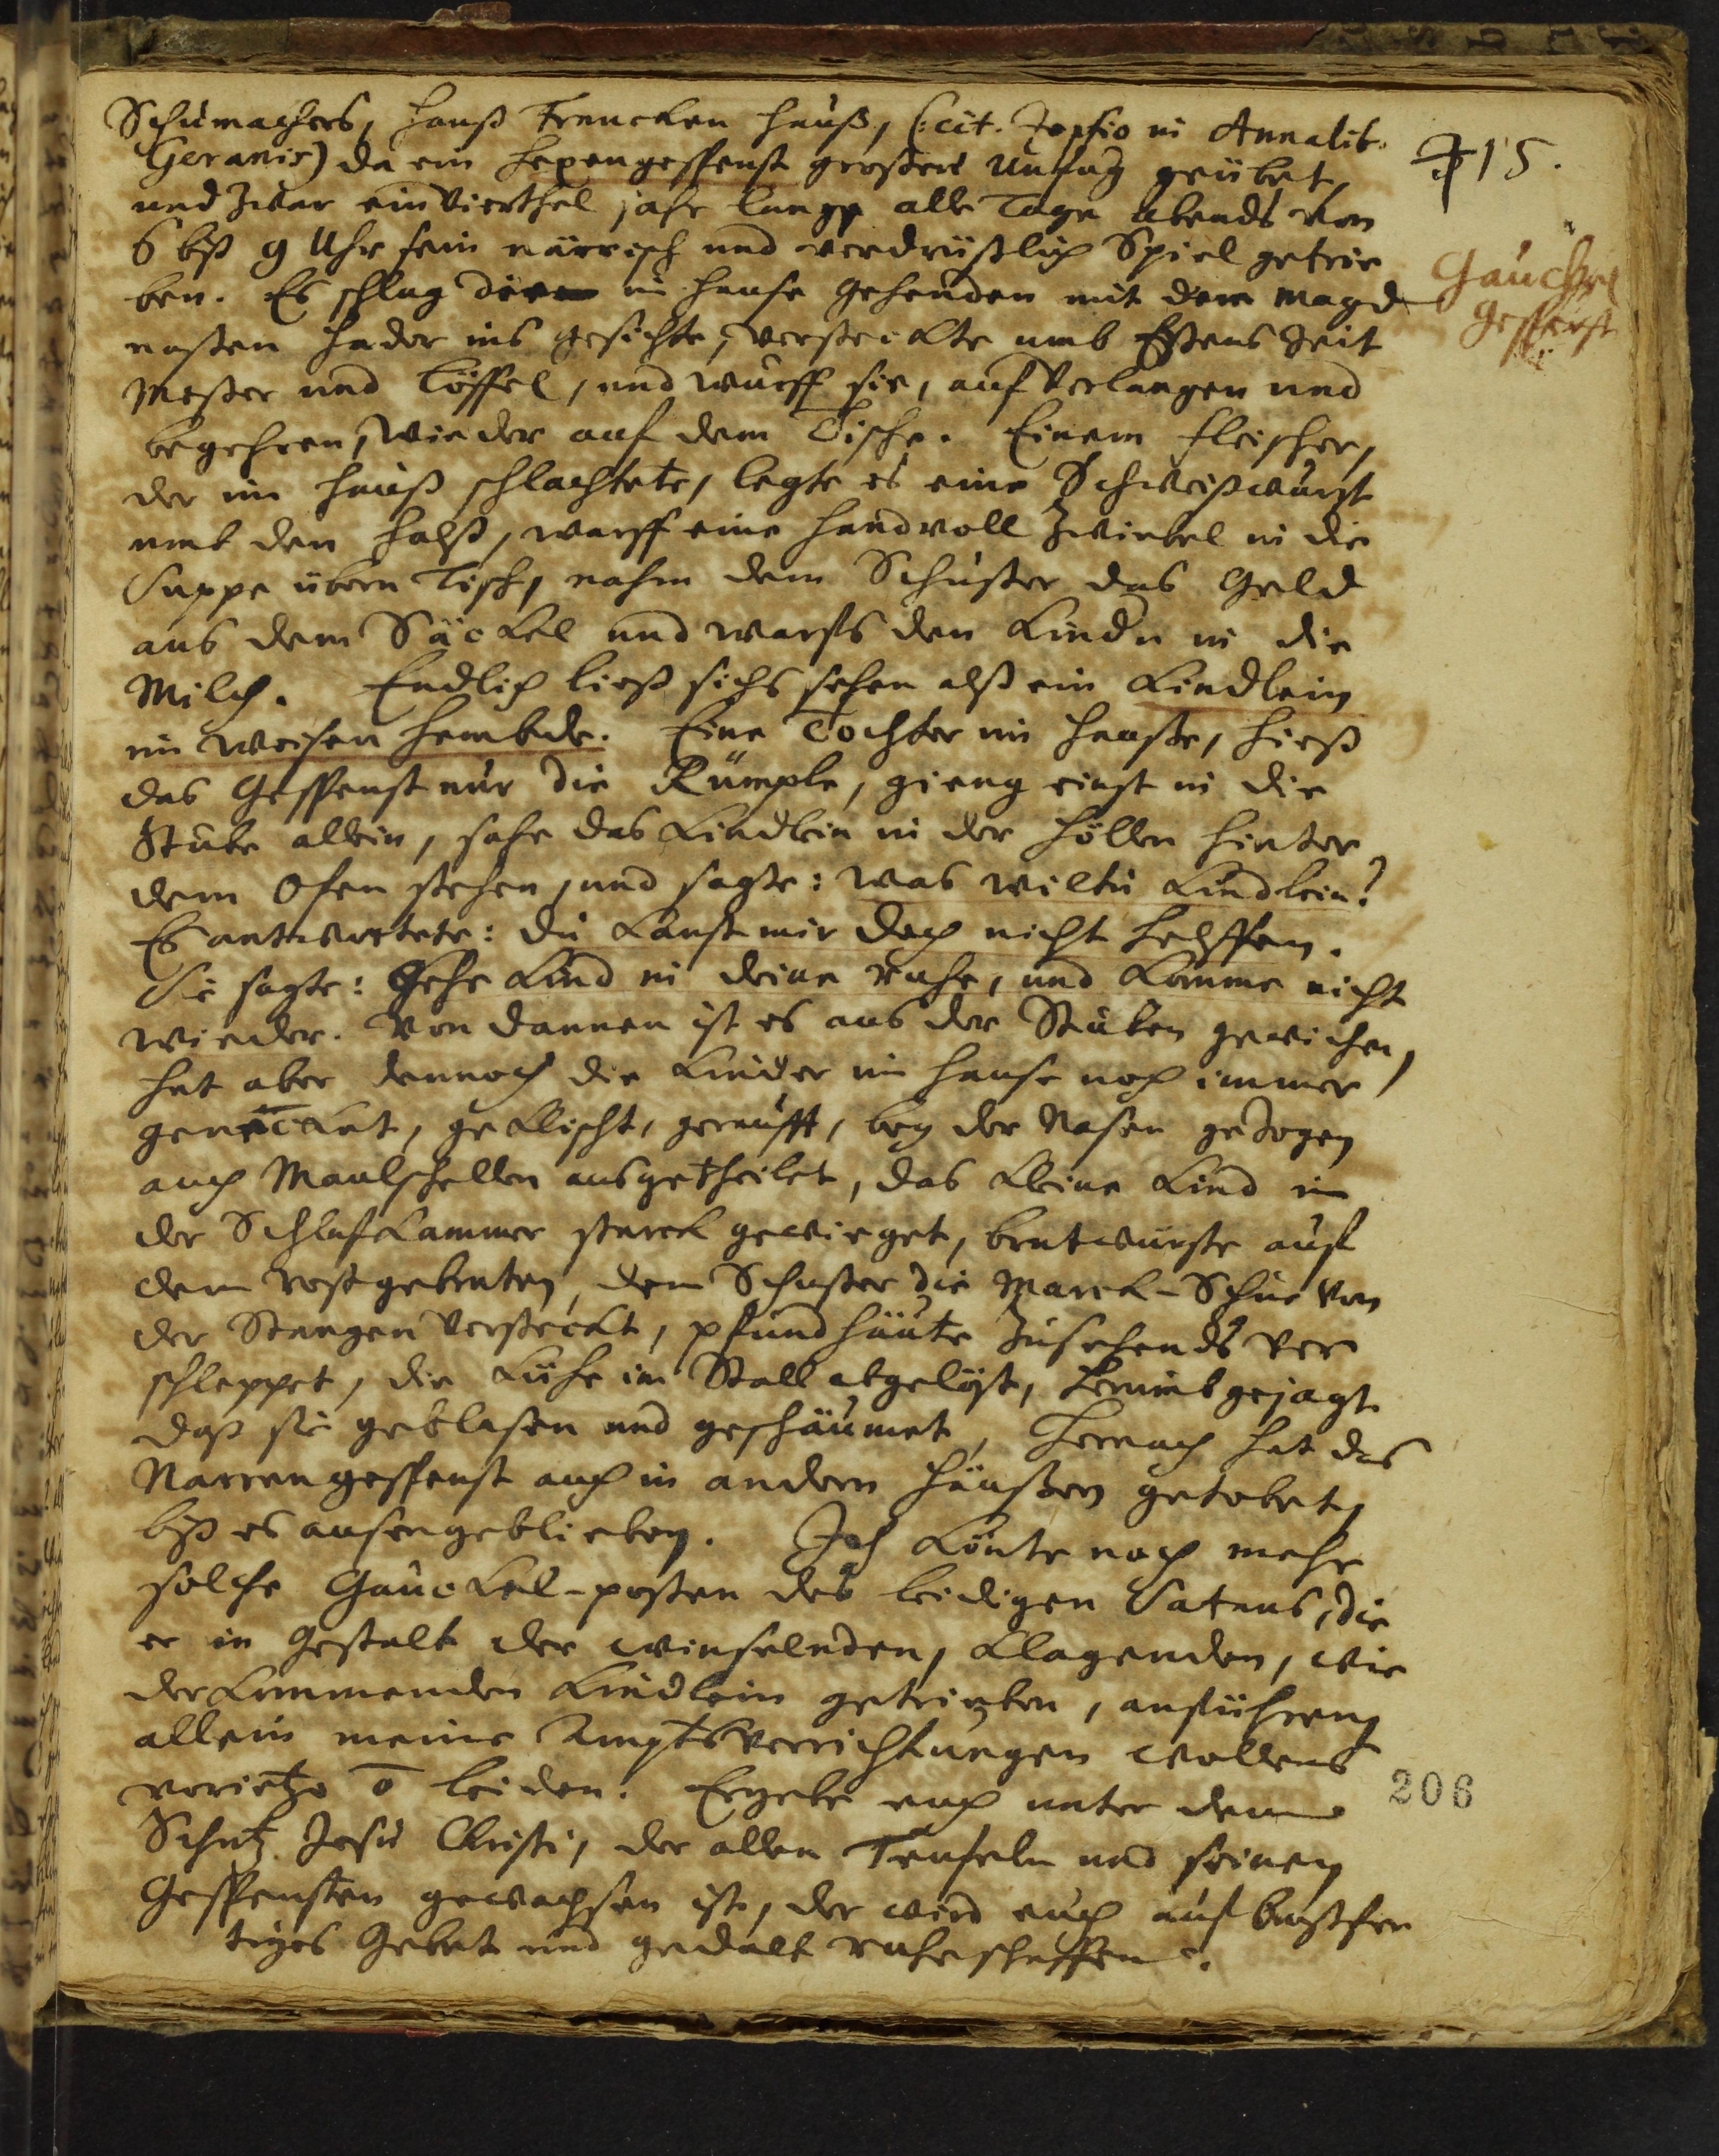 Schumachers, Hanß Francken Hauß, (:cit. Zopfio in Annalib.
Geranis) da ein Hexengespenst großen Unfug geübet,
und zwar ein Vierthel jahr lange alle Tage Abends von
6 biß 9 Uhr sein närrisch und verdrüßlich Spiel getrie
ben. Es schlug die im Hause Gehenden mit dem Magd
naßen Hader ins gesichte, versteickte umb Eßens Zeit
Meßer und Löffel, und wurff sie, auf Verlangen und
begehren, wieder auf dem Tische. Einem Fleischer,
der im Hauß schlachtete, legte es eine Schweißwurst
umb den Halß, warff eine Handvoll Zwiebel in die
Suppe übern Tisch, nahm dem Schuster das Geld
aus dem Säckel und warfs den Kindn in die
Milch. Endlich ließ sichs sehen alß ein Kindlein
im weisen Hembde. Eine Tochter im Hauße, hieß
das Gespenst nur die Rümple, gieng einst in die
Stube allein, sahe das Kindlein in der Höllen hinter
dem Ofen stehen, und sagte: was wiltu Kindlein?
Es antwortete: du kanst mir doch nicht helffen.
Sie sagte: Gehe Kind in deine ruhe, und komme nicht
wieder. Von dannen ist es aus der Stuben gewichen,
hat aber dennoch die Kinder im Hause noch immer
geneckt, geklischt, geraufft, bey der Nasen gezogen
auch Maulschellen ausgetheilet, das kleine Kind in
der Schlafkammer starck gewieget, bratwürste auf
dem rost gebraten, dem Schuster die Marck-Schue von
der Stangen versteckt, pfundhäute zusehends ver
schleppet, die Kühe im Stall abgelöst, herumb gejagt
daß sie geblasen und geschäumet, Hernach hat das
Narrengespenst auch in andern Häußern getobet,
biß es ausengeblieben. Ich könte noch mehr
solche Gauckel-possen des leidigen Satans, die
er in Gestalt der winselnden, klagenden, wie
derkommenden Kindlein getrieben, anführen,
allein meine Amptsverrichtungen wollens
vorietzo õ leiden. Ergebe euch unter dem
Schutz Jesu Christi, der allen Teufeln und seinen
Gespensten gewachsen ist, der wird euch auf bußfer
tiges Gebet und gedult ruhe schaffen.
15.
Gauckel
Gespenst
206